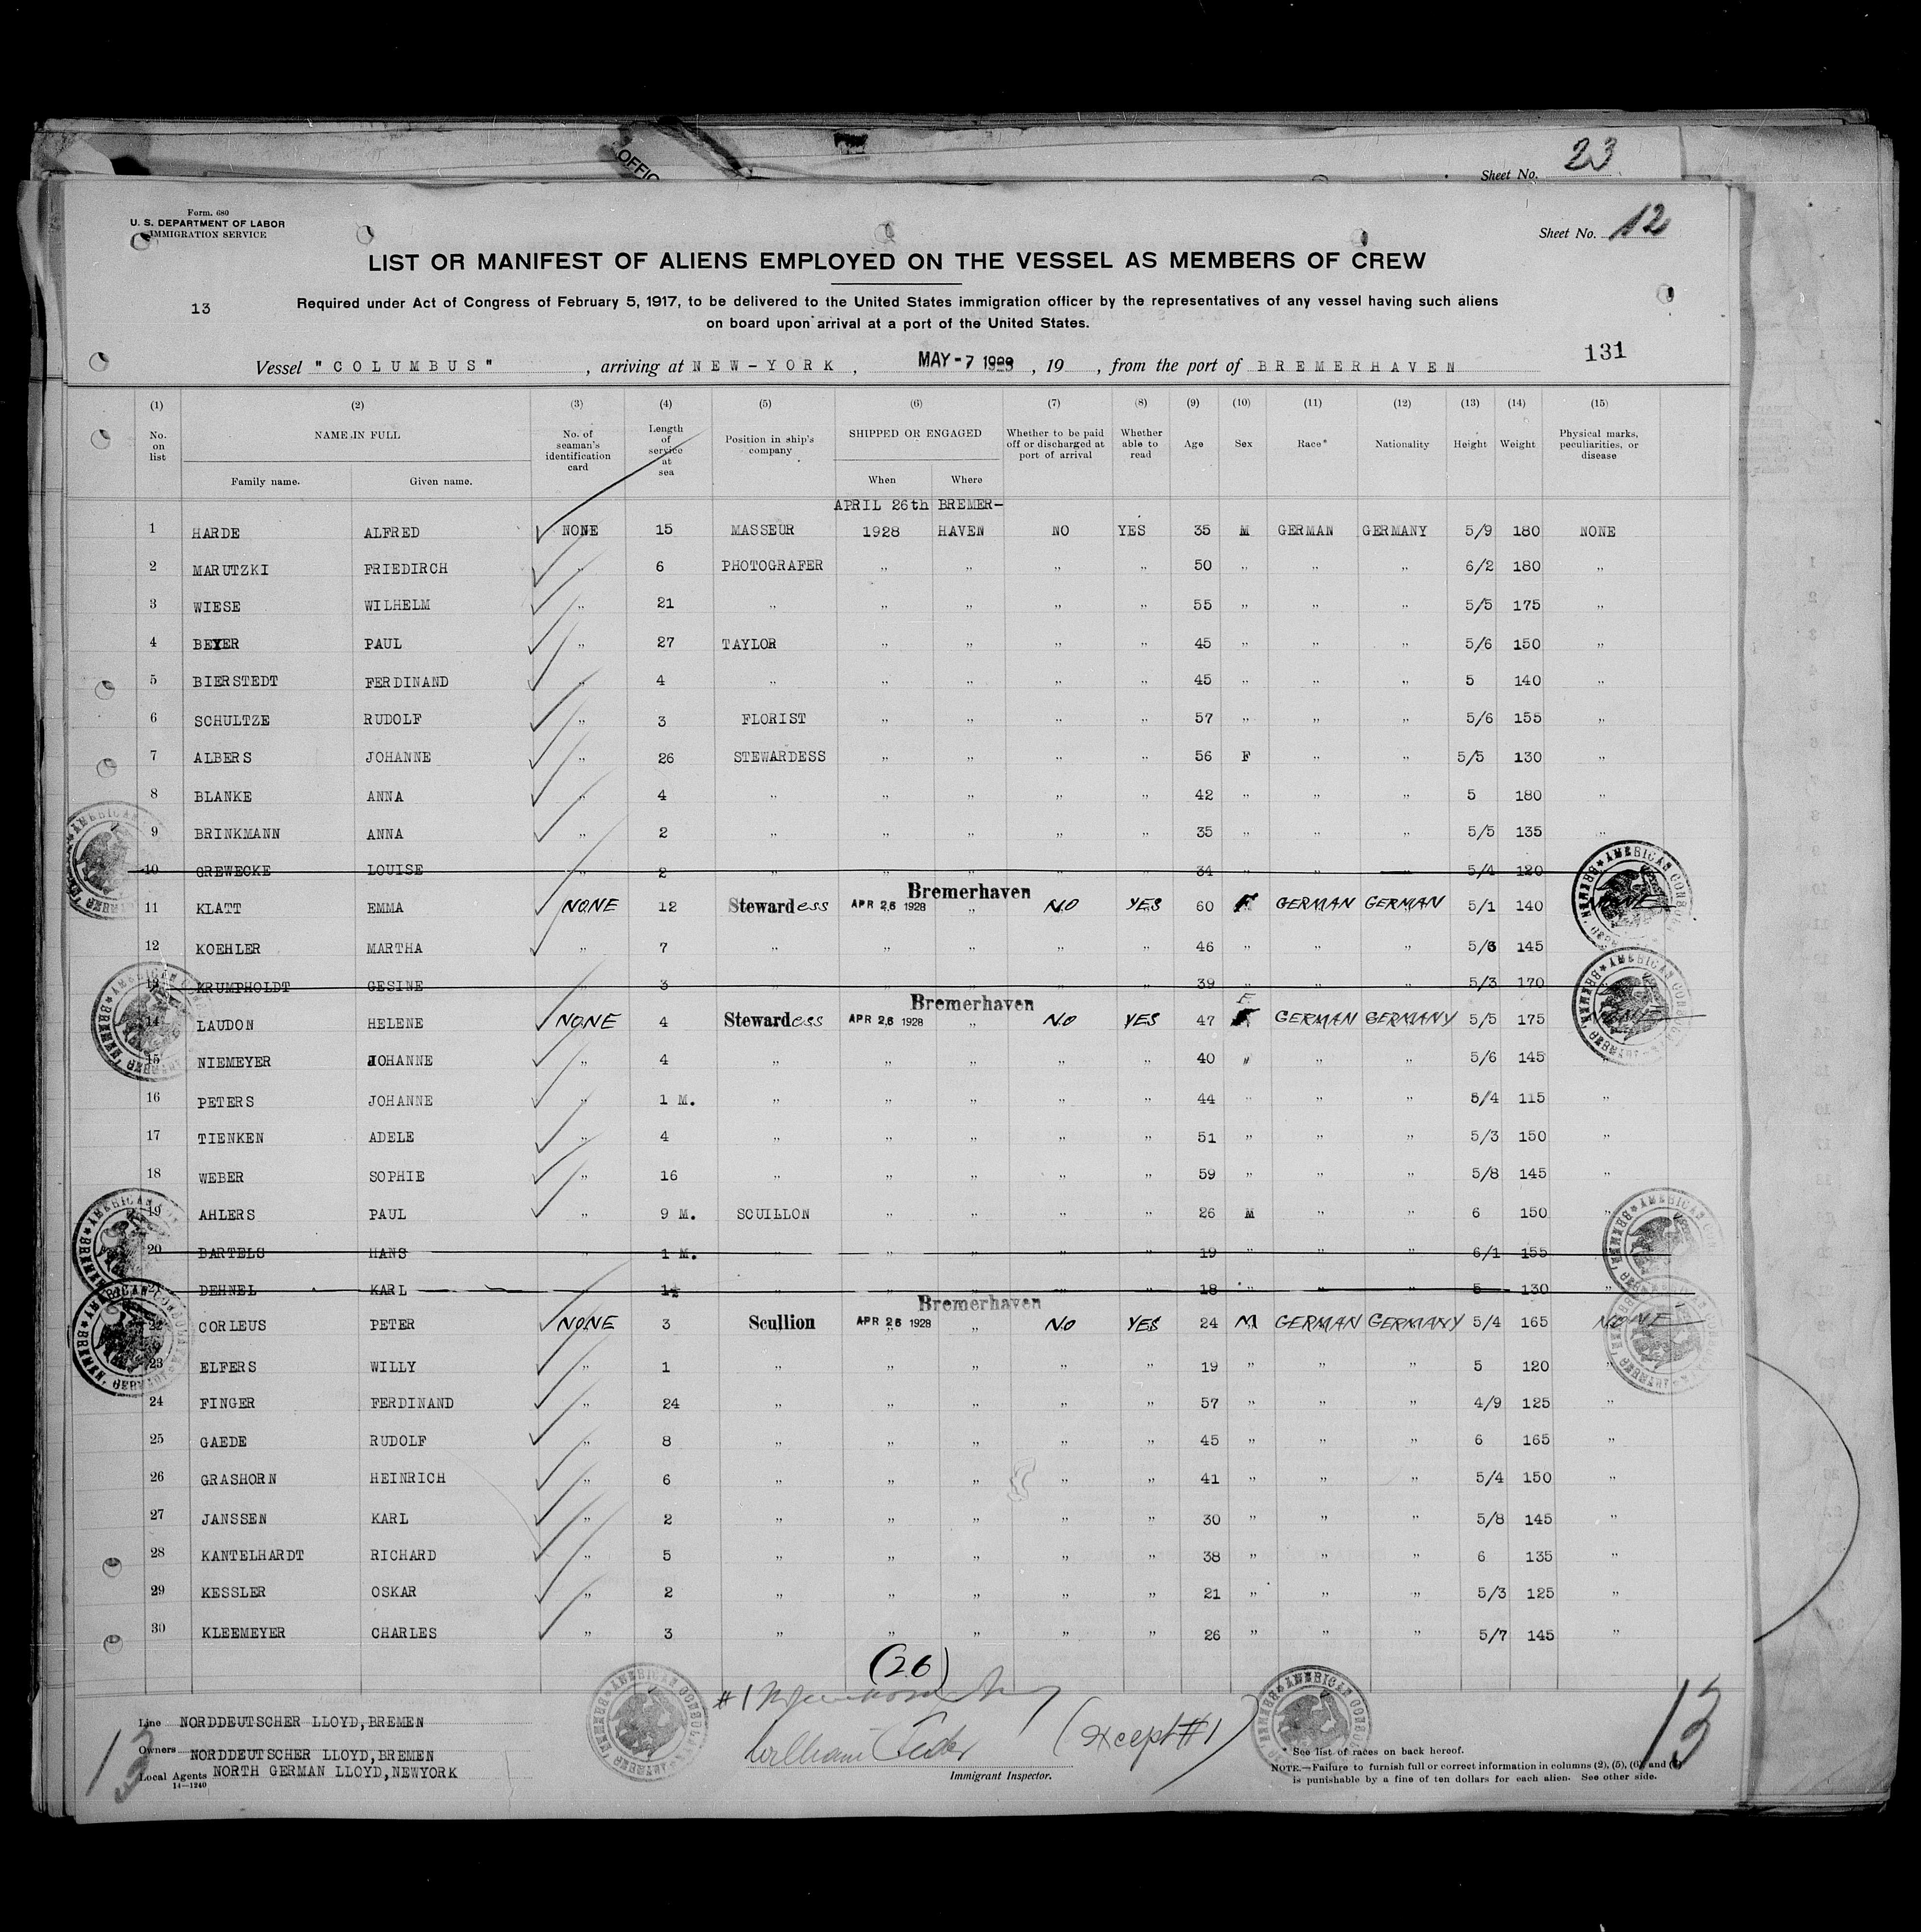 OFFIC
Sheet No. 23
Form. 680
U. S. DEPARTMENT OF LABOR
IMMIGRATION SERVICE
Sheet No. 12
LIST OR MANIFEST OF ALIENS EMPLOYED ON THE VESSEL AS MEMBERS OF CREW
13
Required under Act of Congress of February 5, 1917, to be delivered to the United States immigration officer by the representatives of any vessel having such aliens
on board upon arrival at a port of the United States.
131
Vessel "COLUMBUS", arriving at NEW-YORK, MAY - 7 1928, 19 , from the port of BREMERHAVEN
(1) (2) (3) (4) (5) (6) (7) (8) (9) (10) (11) (12) (13) (14) (15)
No. on list NAME IN FULL No. of seaman's identification card Length of service at sea Position in ship's company SHIPPED OR ENGAGED Whether to be paid off or discharged at port of arrival Whether able to read Age Sex Race* Nationality Height Weight Physical marks, peculiarities, or disease
Family name. Given name. When Where
APRIL 26th BREMER-
1 HARDE ALFRED NONE 15 MASSEUR 1928 HAVEN NO YES 35 M GERMAN GERMANY 5/9 180 NONE
2 MARUTZKI FRIEDIRCH " 6 PHOTOGRAFER " " " " 50 " " " 6/2 180 "
3 WIESE WILHELM " 21 " " " " " 55 " " " 5/5 175 "
4 BEYER PAUL " 27 TAYLOR " " " " 45 " " " 5/6 150 "
5 BIERSTEDT FERDINAND " 4 " " " " " 45 " " " 5 140 "
6 SCHULTZE RUDOLF " 3 FLORIST " " " " 57 " " " 5/6 155 "
7 ALBERS JOHANNE " 26 STEWARDESS " " " " 56 F " " 5/5 130 "
8 BLANKE ANNA " 4 " " " " " 42 " " " 5 180 "
9 BRINKMANN ANNA " 2 " " " " " 35 " " " 5/5 135 "
10 GREWECKE LOUISE " 2 " " " " " 34 " " " 5/4 120
Bremerhaven
11 KLATT EMMA NONE 12 Stewardess APR 26 1928 " NO YES 60 F GERMAN GERMAN 5/1 140 NONE
12 KOEHLER MARTHA " 7 " " " " " 46 " " " 5/6 145
13 KRUMPHOLDT GESINE " 3 " " " " " 39 " " " 5/3 170
Bremerhaven
F
14 LAUDON HELENE NONE 4 Stewardess APR 26 1928 " NO YES 47 GERMAN GERMANY 5/5 175 NONE
15 NIEMEYER JOHANNE " 4 " " " " " 40 " " " 5/6 145 "
16 PETERS JOHANNE " 1 M. " " " " " 44 " " " 5/4 115 "
17 TIENKEN ADELE " 4 " " " " " 51 " " " 5/3 150 "
18 WEBER SOPHIE " 16 " " " " " 59 " " " 5/8 145 "
19 AHLERS PAUL " 9 M. SCUILLON " " " " 26 M " " 6 150 "
20 BARTELS HANS " 1 M. " " " " " 19 " " " 6/1 155 "
21 DEHNEL KARL " 1½ " " " " " 18 " " " 5 130 "
Bremerhaven
22 CORLEUS PETER NONE 3 Scullion APR 26 1928 " NO YES 24 M GERMAN GERMANY 5/4 165 NONE
23 ELFERS WILLY " 1 " " " " " 19 " " " 5 120 "
24 FINGER FERDINAND " 24 " " " " " 57 " " " 4/9 125 "
25 GAEDE RUDOLF " 8 " " " " " 45 " " " 6 165 "
26 GRASHORN HEINRICH " 6 " " " " " 41 " " " 5/4 150 "
27 JANSSEN KARL " 2 " " " " " 30 " " " 5/8 145 "
28 KANTELHARDT RICHARD " 5 " " " " " 38 " " " 6 135 "
29 KESSLER OSKAR " 2 " " " " " 21 " " " 5/3 125 "
30 KLEEMEYER CHARLES " 3 " " " " " 26 " " " 5/7 145 "
(26)
#1
Line NORDDEUTSCHER LLOYD, BREMEN
William (Except #1)
Owners NORDDEUTSCHER LLOYD, BREMEN
Local Agents NORTH GERMAN LLOYD, NEWYORK
14—1240
Immigrant Inspector.
* See list of races on back hereof.
NOTE.—Failure to furnish full or correct information in columns (2), (5), (6), and (7)
is punishable by a fine of ten dollars for each alien. See other side.
13
13